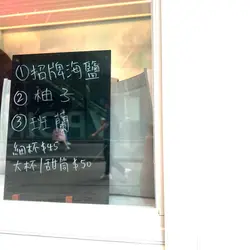 ①招牌海鹽
②柚子
③斑蘭
細杯$45
大杯/甜筒$50